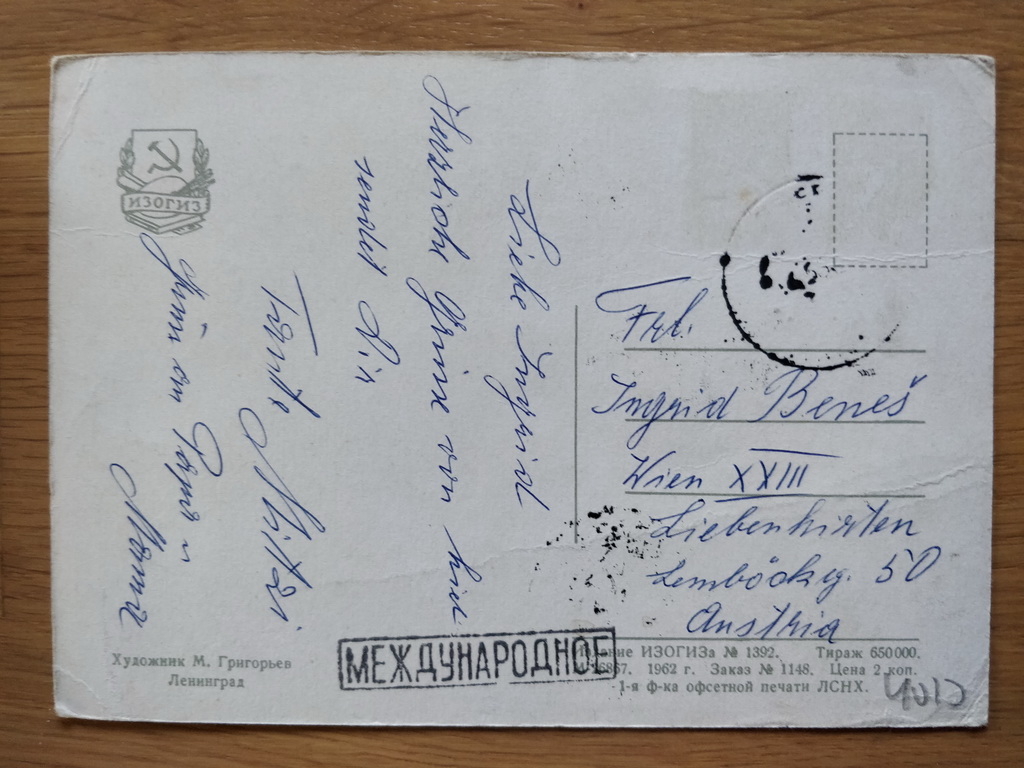 ИЗОГИЗ
Liebe Ingrid
Herzliche Grüsse von hier
sendet Dir
Tante
Papa u
Mama
Frl.
Ingrid Beneš
Wien XXIII
Liebenhirten
Lemböckg. 50
Austria
МЕЖДУНАРОДНОЕ
Художник М. Григорьев
Ленинград
Издание ИЗОГИЗа № 1392. Тираж 650000.
1962 г. Заказ № 1148. Цена 2 коп.
1-я ф-ка офсетной печати ЛСНХ.